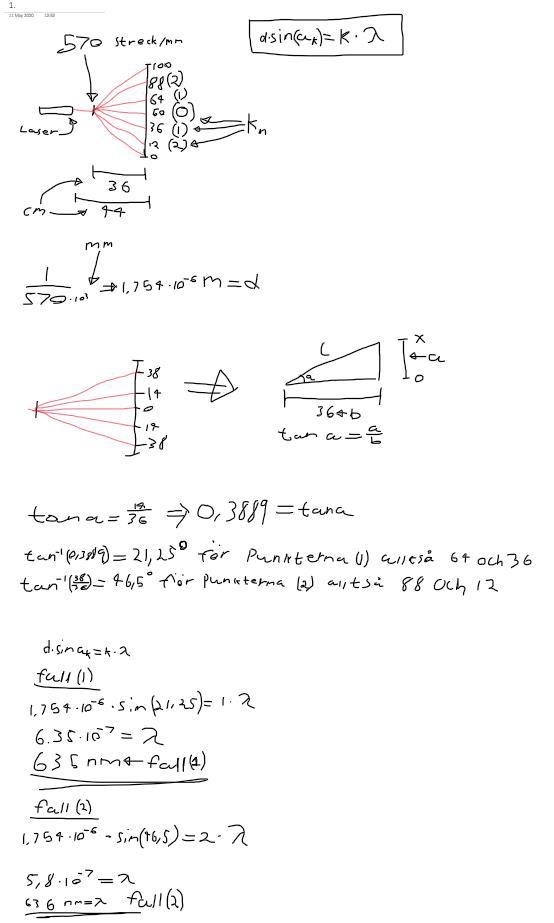 1.
11 May 2020 13:53
570 streck/mm
d·sin(a_k)=k·λ
100
88 (2)
64 (1)
60 (0)
36 (1)
12 (2)
0
Laser
K_n
36
cm
44
mm
1/570·10³ ⇒ 1,754·10⁻⁶ m = d
38
14
0
14
-38
L
a
x
←a
0
36←b
tan a = a/b
tan a = 14/36 ⇒ 0,3889 = tan a
tan⁻¹(0,3889) = 21,25° för Punkterna (1) alltså 64 och 36
tan⁻¹(38/36) = 46,5° för Punkterna (2) alltså 88 och 12
d·sin a_k = k·λ
fall (1)
1,754·10⁻⁶·sin(21,25) = 1·λ
6.35·10⁻⁷ = λ
635 nm ← fall (1)
fall (2)
1,754·10⁻⁶·sin(46,5) = 2·λ
5,8·10⁻⁷ = λ
636 nm = λ fall (2)